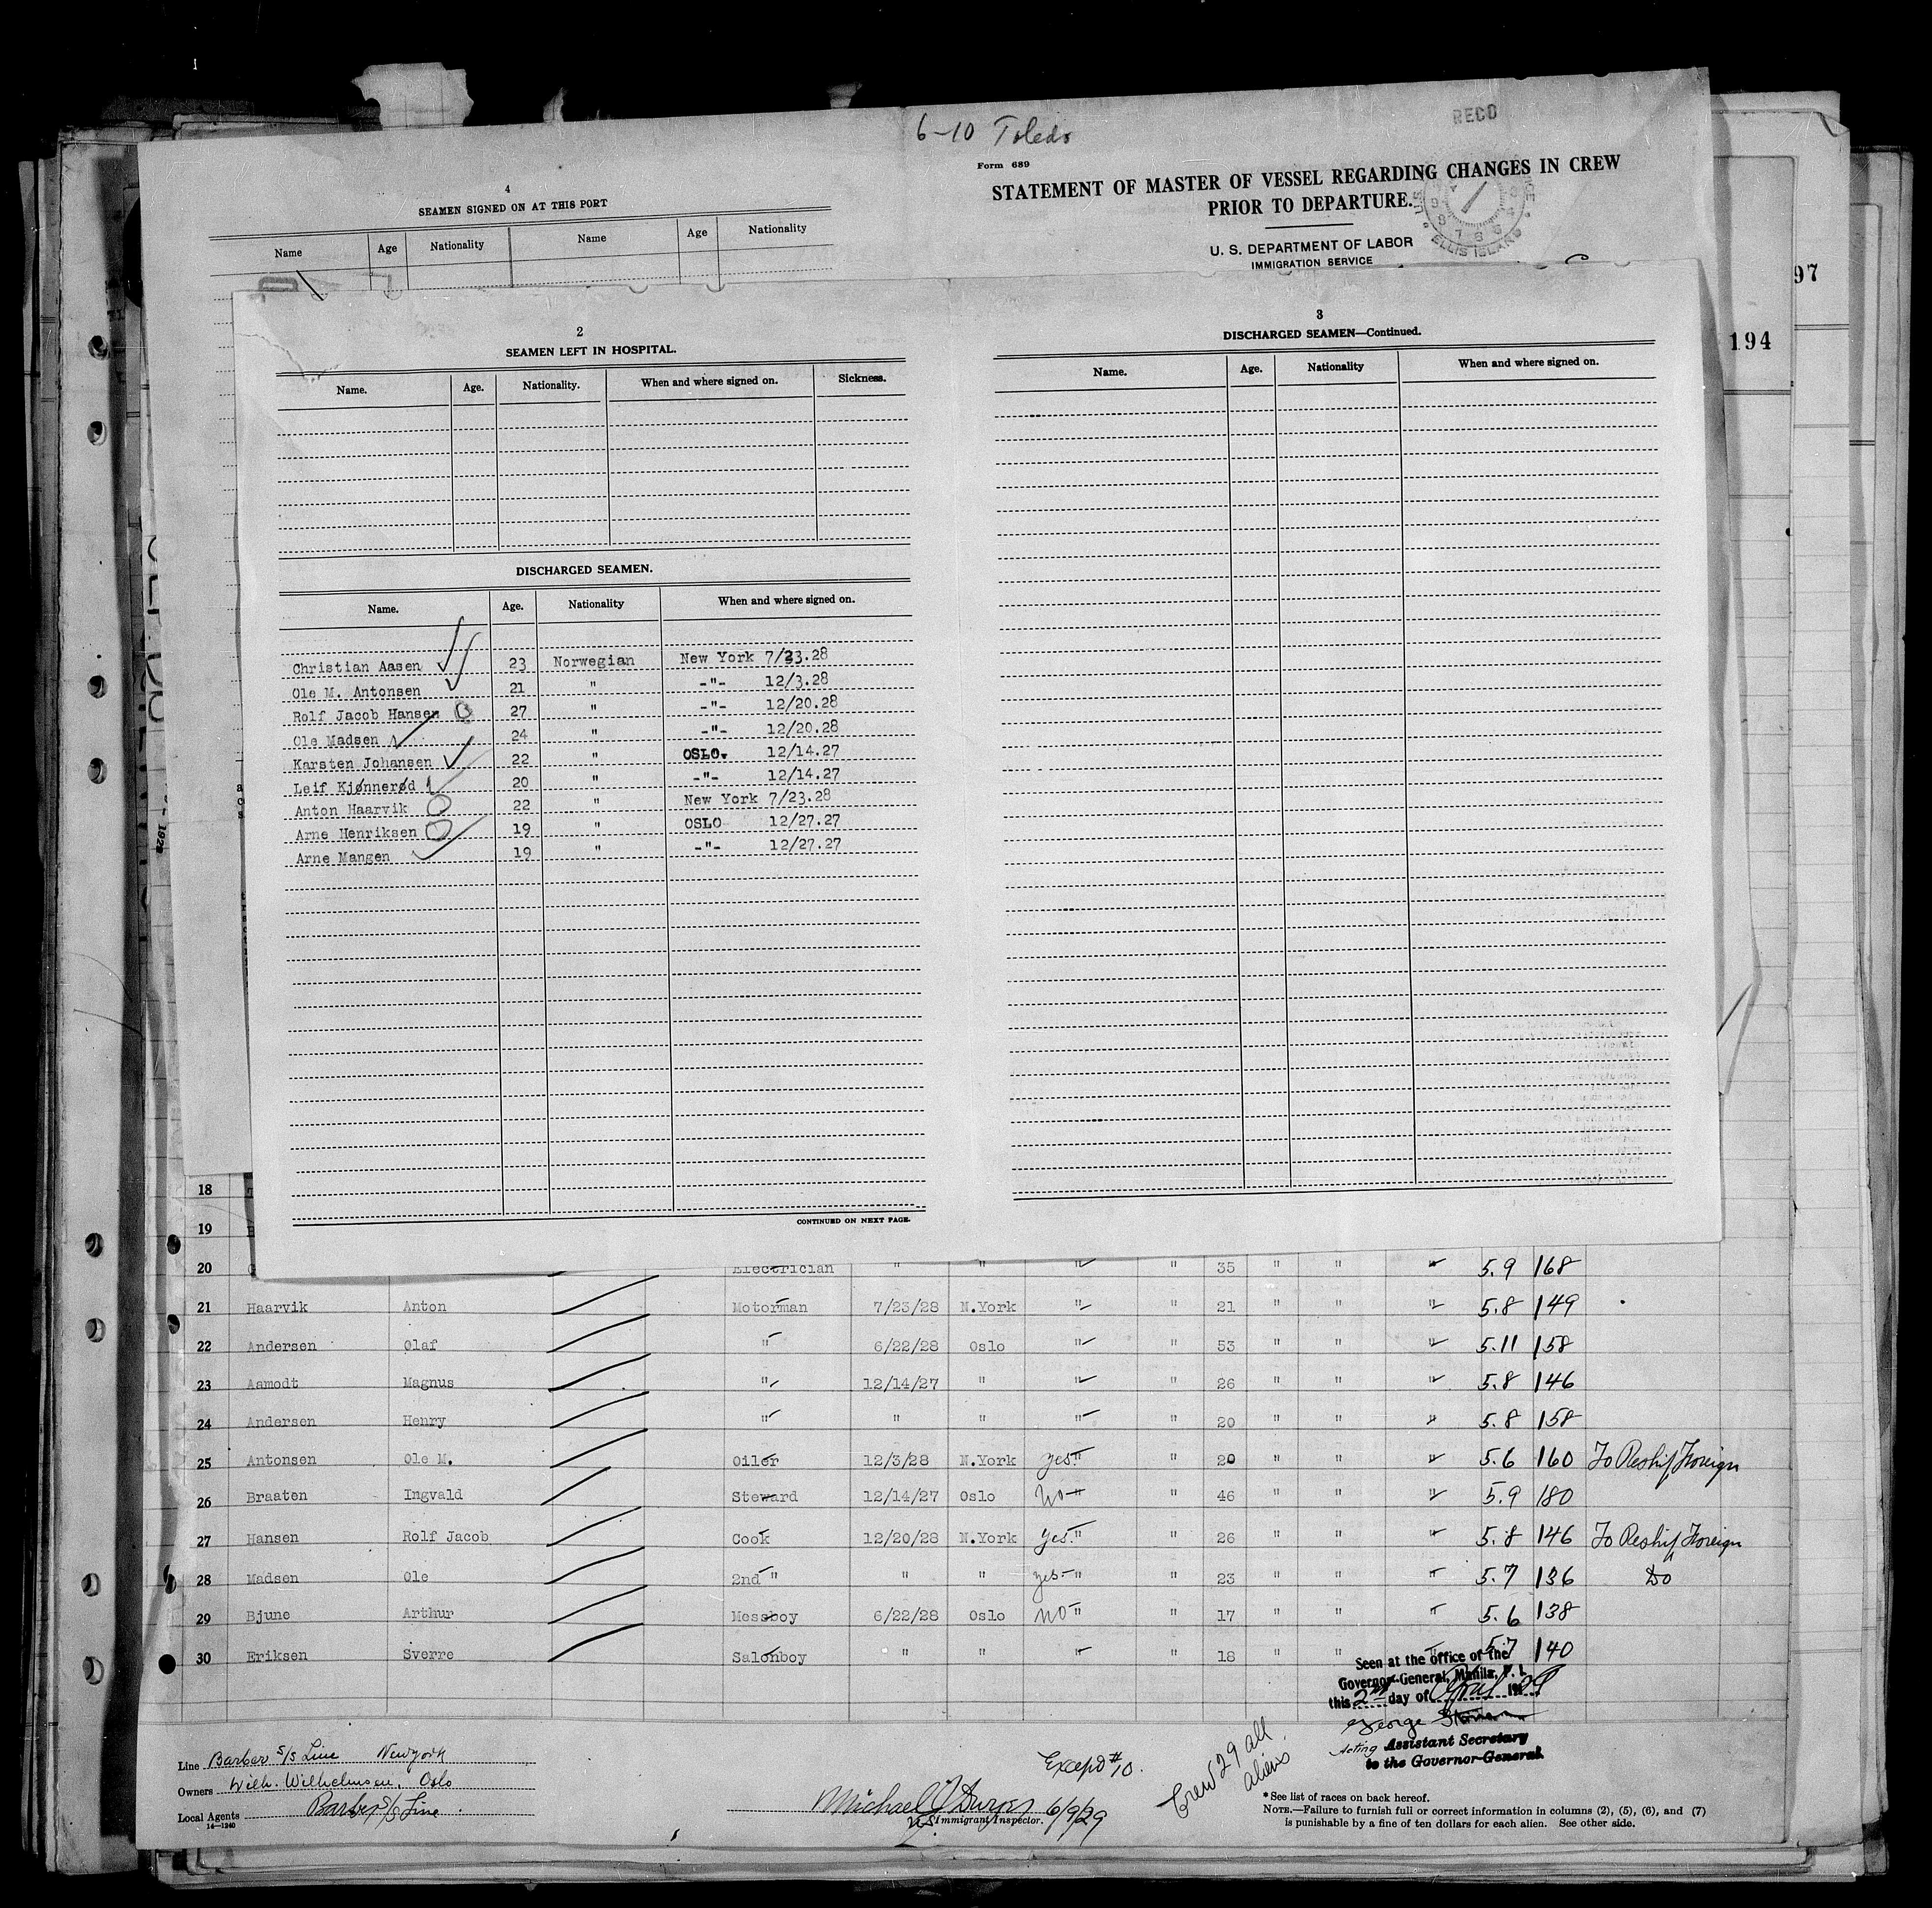 6-10 Toledo
RECD
Form 689
STATEMENT OF MASTER OF VESSEL REGARDING CHANGES IN CREW
PRIOR TO DEPARTURE.
U. S. DEPARTMENT OF LABOR
IMMIGRATION SERVICE
ELLIS ISLAND
4
SEAMEN SIGNED ON AT THIS PORT
Name Age Nationality Name Age Nationality
97
194
2
SEAMEN LEFT IN HOSPITAL.
Name. Age. Nationality. When and where signed on. Sickness.
DISCHARGED SEAMEN.
Name. Age. Nationality When and where signed on.
Christian Aasen 23 Norwegian New York 7/23.28
Ole M. Antonsen 21 " -"- 12/3.28
Rolf Jacob Hansen 27 " -"- 12/20.28
Ole Madsen 24 " -"- 12/20.28
Karsten Johansen 22 " OSLO. 12/14.27
Leif Kjønnerød 20 " -"- 12/14.27
Anton Haarvik 22 " New York 7/23.28
Arne Henriksen 19 " OSLO 12/27.27
Arne Mangen 19 " -"- 12/27.27
CONTINUED ON NEXT PAGE.
3
DISCHARGED SEAMEN—Continued.
Name. Age. Nationality When and where signed on.
18
19
20 Electrician " " " " 35 " " " 5.9 168
21 Haarvik Anton Motorman 7/23/28 N.York " " 21 " " " 5.8 149
22 Andersen Olaf " 6/22/28 Oslo " " 53 " " " 5.11 158
23 Aamodt Magnus " 12/14/27 " " " 26 " " " 5.8 146
24 Andersen Henry " " " " " 20 " " " 5.8 158
25 Antonsen Ole M. Oiler 12/3/28 N.York yes " " 20 " " " 5.6 160 To Reship Foreign
26 Braaten Ingvald Steward 12/14/27 Oslo No " " 46 " " " 5.9 180
27 Hansen Rolf Jacob Cook 12/20/28 N.York yes " " 26 " " " 5.8 146 To Reship Foreign
28 Madsen Ole 2nd " " " yes " " 23 " " " 5.7 136 Do
29 Bjune Arthur Messboy 6/22/28 Oslo No " " 17 " " " 5.6 138
30 Eriksen Sverre Salonboy " " " " 18 " " " 5.7 140
Seen at the office of the
Governor-General, Manila, P. I.
this 2nd day of April 1929
George
Acting Assistant Secretary
to the Governor-General.
Line Barber S/S Line New York
Owners Wilh. Wilhelmsen, Oslo
Local Agents Barber S/S Line
14-1240
Except #10.
Crew 29 all aliens
Michael J. 6/9/29
US Immigrant Inspector.
* See list of races on back hereof.
NOTE.—Failure to furnish full or correct information in columns (2), (5), (6), and (7)
is punishable by a fine of ten dollars for each alien. See other side.